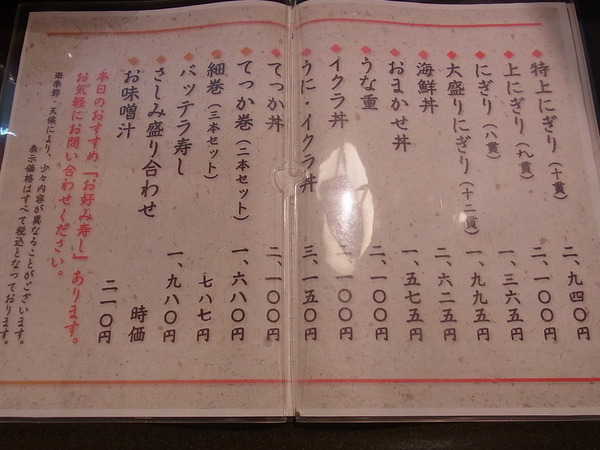 特上にぎり（十貫） 二、九四〇円
上にぎり（九貫） 二、一〇〇円
にぎり（八貫） 一、三六五円
大盛りにぎり（十二貫） 一、九九五円
海鮮丼 二、六二五円
おまかせ丼 一、五七五円
うな重 二、一〇〇円
イクラ丼 二、一〇〇円
うに・イクラ丼 三、一五〇円
てっか丼 二、一〇〇円
てっか巻（二本セット） 一、六八〇円
細巻（三本セット） 七八七円
バッテラ寿し 一、九八〇円
さしみ盛り合わせ 時価
お味噌汁 二一〇円
本日のおすすめ『お好み寿し』あります。
お気軽にお問い合わせください。
※季節・天候により、少々内容が異なることがございます。
表示価格はすべて税込となっております。